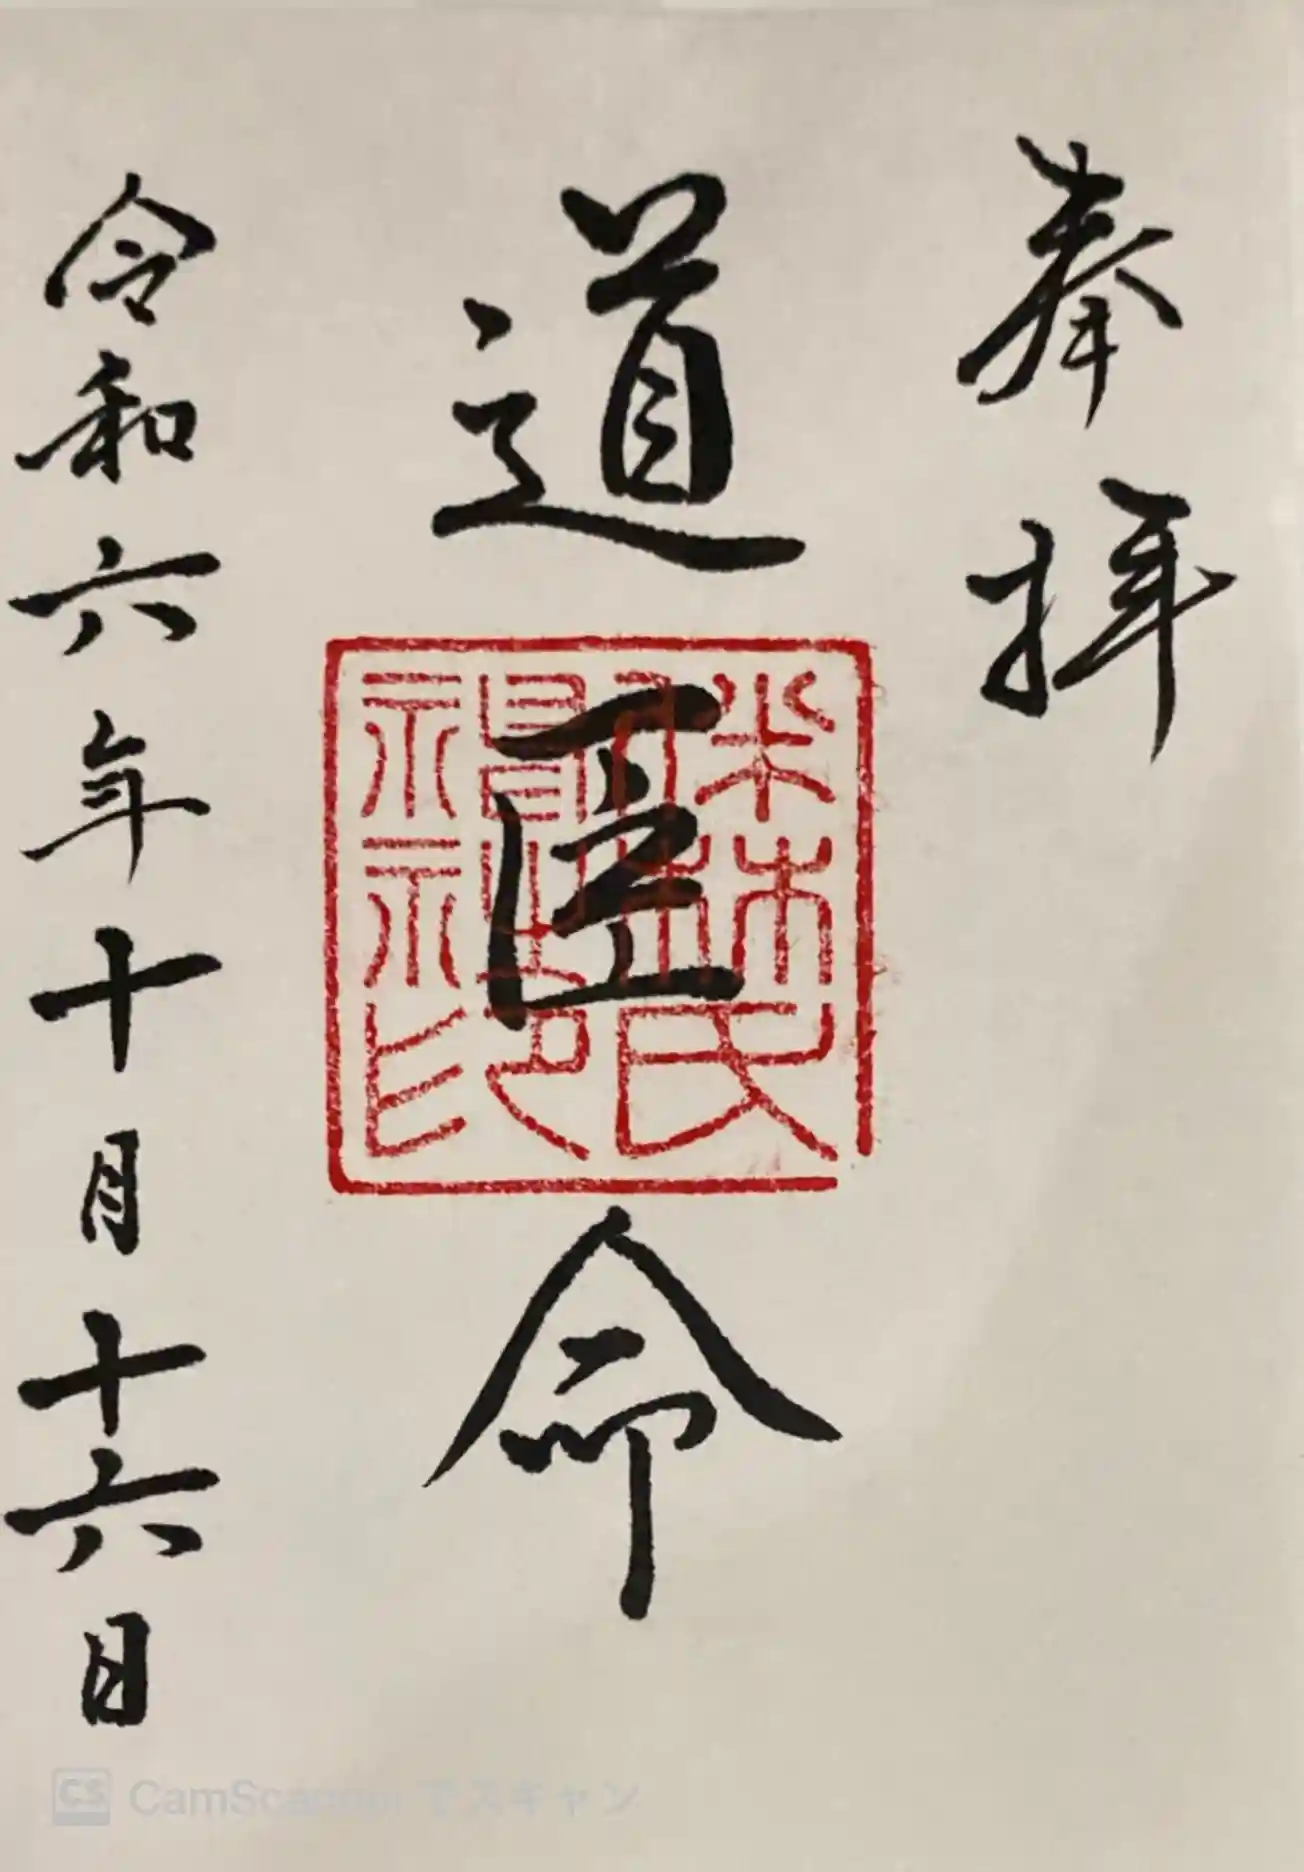 奉拝
道臣命
令和六年十月十六日
CS CamScanner でスキャン